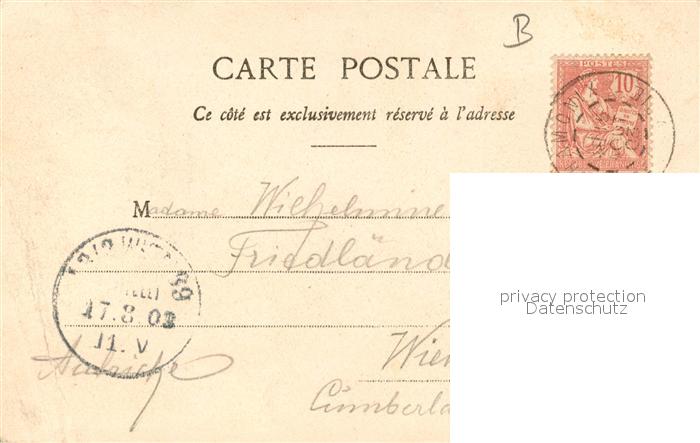 B
CARTE POSTALE
POSTES
10
Ce côté est exclusivement réservé à l'adresse
Madame Wilhelmine
Friedländ
privacy protection
Datenschutz
17.8.03
11. V
Wien
Autriche
Cumberla